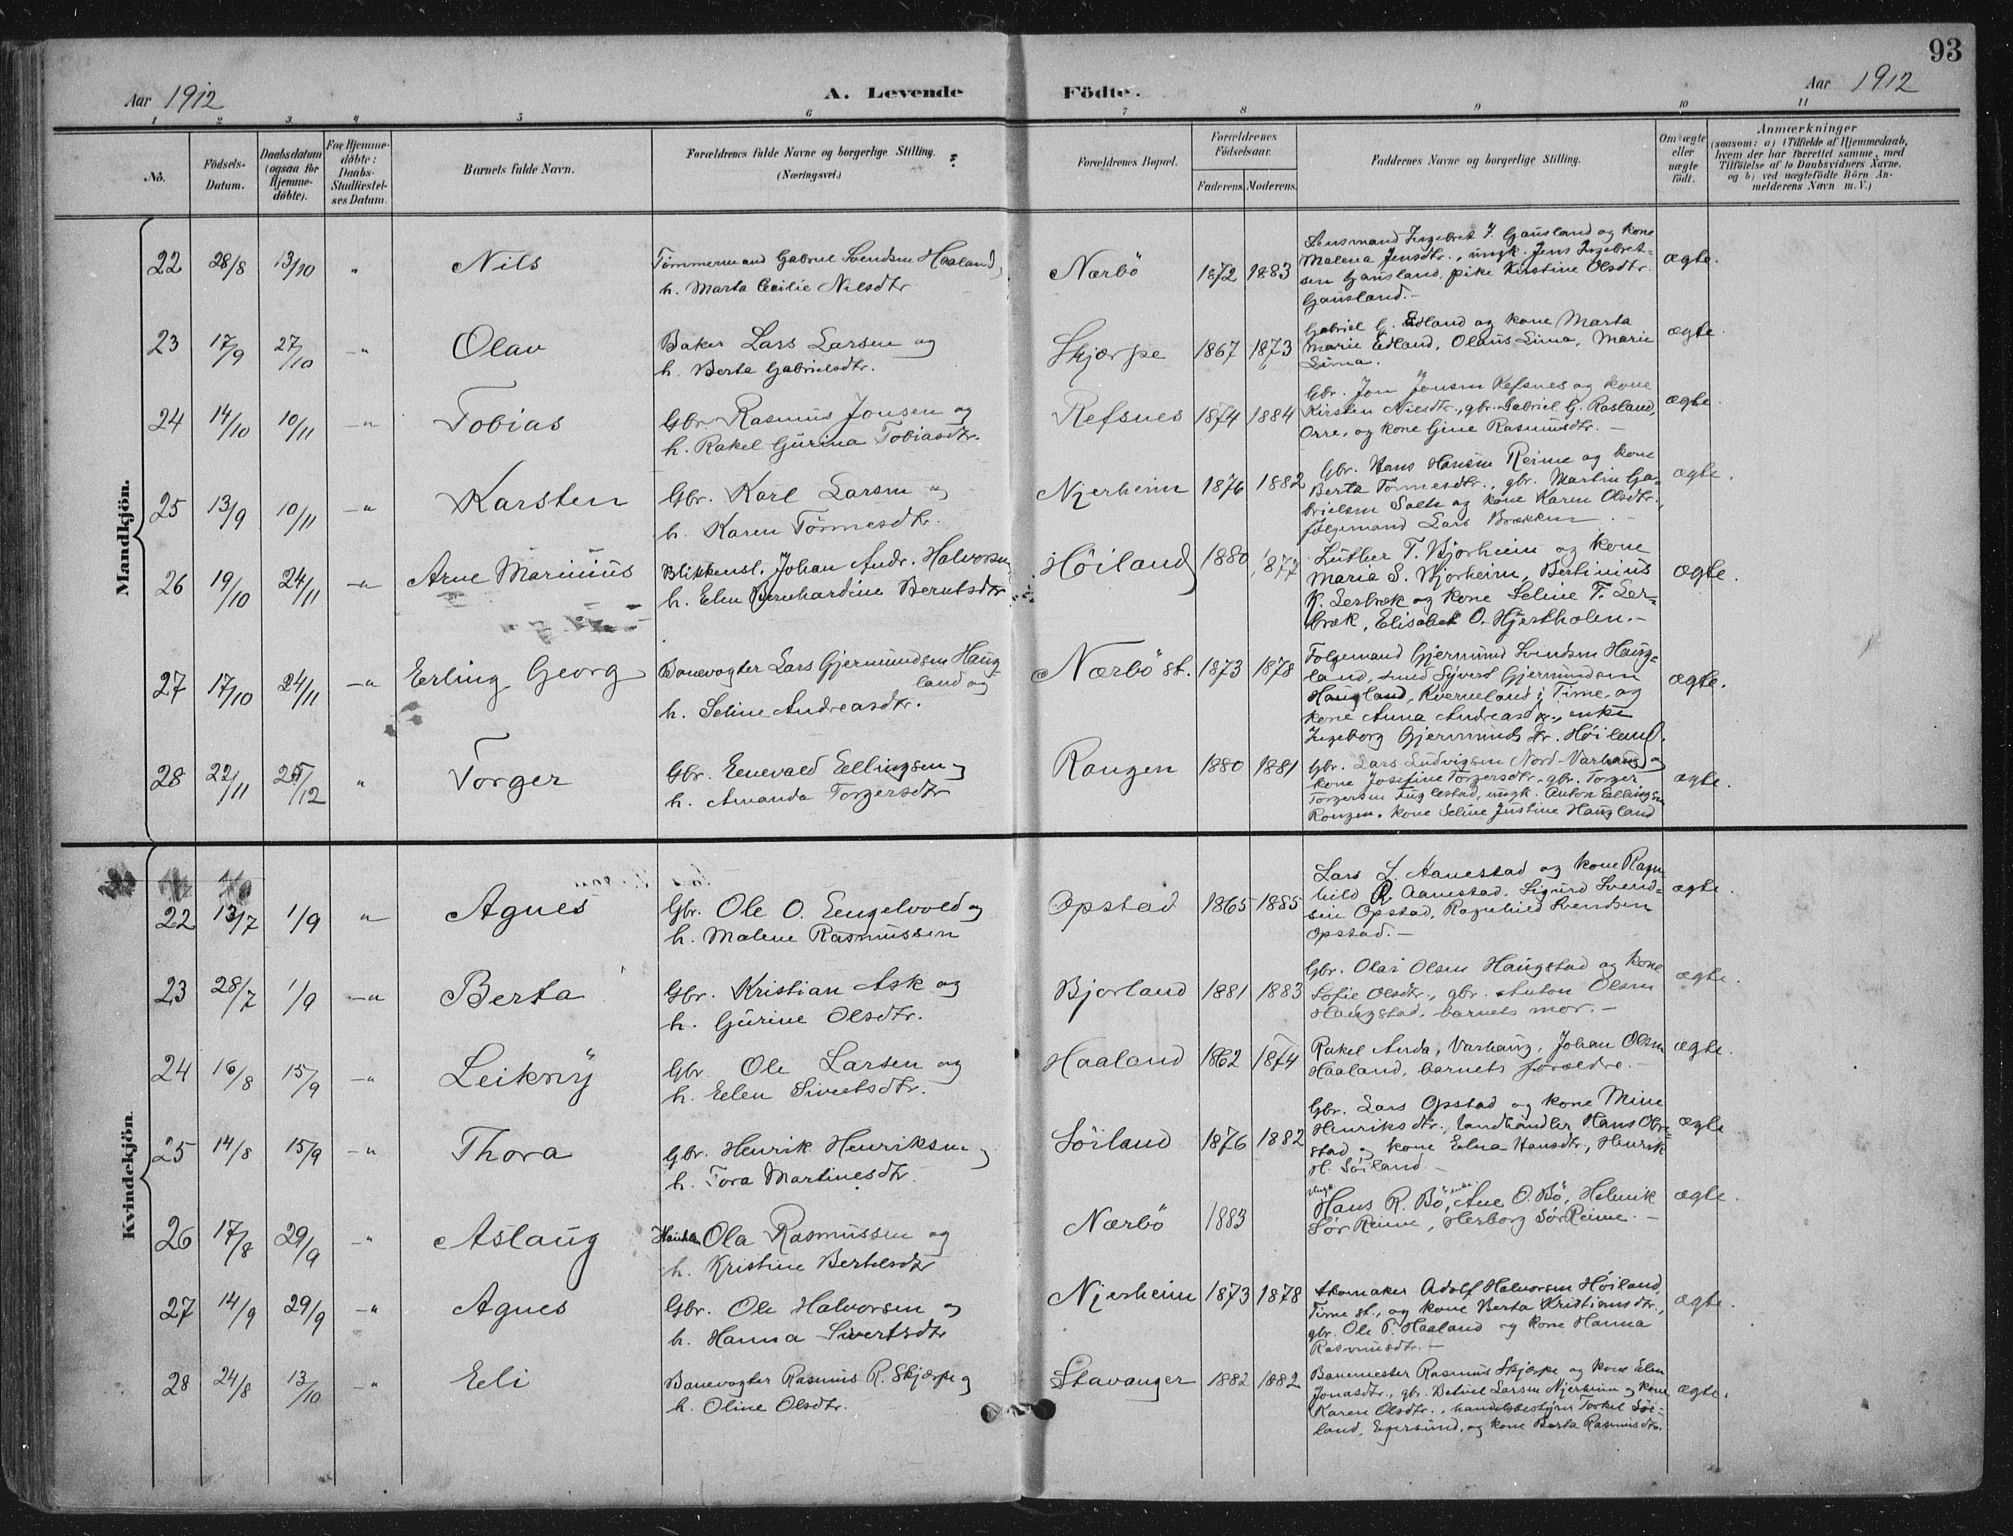 93
Aar 1912
A. Levende
Födte.
Aar 1912
1 2 3 4 5 6 7 8 9 10 11
No.
Födsels-
Datum.
Daabsdatum
(ogsaa for
Hjemme-
döbte).
For Hjemme-
döbte:
Daabs-
Stadfæstel-
ses Datum.
Barnets fulde Navn.
Forældrenes fulde Navne og borgerlige Stilling.
(Næringsvei.)
Forældrenes Bopæl.
Forældrenes
Födselsaar.
Faderens.
Moderens.
Faddernes Navne og borgerlige Stilling.
Om ægte
eller
uægte
födt.
Anmærkninger
(saasom: a) i Tilfælde af Hjemmedaab,
hvem der har forrettet samme, med
Tilföielse af to Daabsvidners Navne,
og b) ved uægtefödte Börn An-
melderens Navn m. V.)
Mandkjön.
22 28/8 13/10 " Nils
Tömmermand Gabriel Svendsen Haaland,
h. Marta Cecilie Nilsdtr
Nærbö 1872 1883
Ingebret J. Gausland og kone
Malena Jensdtr., ungk. Jens Ingebret-
sen Gausland, pike Kirstine Olsdtr.
Gausland.-
ægte.
23 17/9 27/10 -"- Olav
Baker Lars Larsen og
h. Berta Gabrielsdtr.
Skjærpe 1867 1873
Gabriel G. Edland og kone Marta
Marie Edland, Olaus Lima, Marie
Lima.
ægte
24 14/10 10/11 -"- Tobias
Gbr. Rasmus Jonsen og
h. Rakel Gurina Tobiasdtr.
Refsnes 1874 1884
Gbr. Jon Jonsen Refsnes og kone
Kirsten Nilsdtr., gbr. Gabriel G. Rasland,
Orre, og kone Gine Rasmusdtr. -
ægte.
25 13/9 10/11 -"- Karsten
Gbr. Karl Larsen og
h. Karen Tönnesdtr.
Njerheim 1876 1882
Gbr. Hans Hansen Reime og kone
Berta Tönnesdtr., gbr. Martin Ga-
brielsen Salte og kone Karen Olsdtr.,
fölgemand Lars Brækken
ægte.
26 19/10 24/11 -"- Arne Marinius
Blikkensl. Johan Andr. Halvorsen
h. Elen Bernhardine Berntsdtr
Höiland 1880 1877
Luther T. Bjorheim og kone
Maria S. Bjorheim, Bertinius
K. Lerbræk og kone Seline T. Ler-
bræk, Elisabet O. Hjertholen.-
ægte.
27 17/10 24/11 -"- Erling Georg
Banevogter Lars Gjermundsen Haug-
land og
h. Seline Andreasdtr.
Nærbö st. 1873 1878
Folgemand Gjermund Svendsen Haug-
land, smed Syvert Gjermundsen
Haugland, Kverneland i Time, og
kone Anna Andreasdtr., enke
Ingeborg Gjermundsdtr. Höiland.
ægte.
28 22/11 25/12 " Torger
Gbr. Enevald Ellingsen og
h. Amanda Torgersdtr
Rongen 1880 1881
Gbr. Lars Ludvigsen Nord-Varhaug og
kone Josefine Torgersdtr., gbr. Torger
Torgersen Fuglestad, ungk. Anton Ellingsen
Rongen, kone Seline Justine Haugland
ægte.
Kvindekjön.
22 13/7 1/9 " Agnes
Gbr. Ole O. Engelvold og
h. Malene Rasmussen
Opstad 1865 1885
Lars L. Aanestad og kone Ragn-
hild R. Aanestad, Sigurd Svend-
sen Opstad, Ragnhild Svendsen
Opstad.-
ægte.
23 28/7 1/9 -"- Berta
Gbr. Kristian Ask og
h. Gurine Olsdtr.
Bjorland 1881 1883
Gbr. Olai Olsen Haugstad og kone
Sofie Olsdtr., gbr. Anton Olsen
Haugstad, barnets mor. -
ægte.
24 16/8 15/9 -"- Leikny
Gbr. Ole Larsen og
h. Elen Sivertsdtr.
Haaland 1862 1874
Rakel Anda, Varhaug, Johan Olsen
Haaland, barnets forældre. -
ægte.
25 14/8 15/9 -"- Thora
Gbr. Henrik Henriksen og
h. Tora Martinesdtr.
Söiland 1876 1882
Gbr. Lars Opstad og kone Mine
Henriksdtr., landhandler Hans Obre-
stad og kone Elna Hansdtr., Henrik
H. Söiland. -
ægte.
26 17/8 29/9 -"- Aslaug
Ola Rasmussen og
h. Kristine Bertelsdtr
Nærbö 1883
Ungk. Hans R. Bö, enke Ane O. Bö, Helmik
Sör Reime, Herborg SörReime. -
ægte.
27 14/9 29/9 -"- Agnes
Gbr. Ole Halvorsen og
h. Hanna Sivertsdtr
Njerheim 1873 1878
Skomaker Adolf Halvorsen Höiland,
Time st., og kone Berta Kristiansdtr.,
gbr. Ole P. Haaland og kone Hanna
Rasmusdtr. -
ægte.
28 24/8 13/10 -"- Eli
Banevogter Rasmus R. Skjærpe og
h. Oline Olsdtr.
Stavanger 1882 1882
Banemester Rasmus Skjærpe og kone Elen
Jonasdtr., gbr. Betuel Larsen Njerheim og kone
Karen Olsdtr., handelsbestyrer Torkel Söi-
land, Egersund, og kone Berta Rasmusdtr.
ægte.